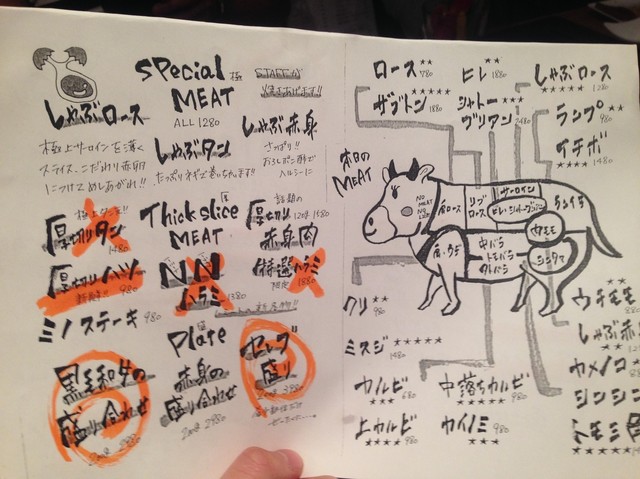 Special
極
MEAT
ALL 1280
STAFFが
焼きあげます!!
しゃぶロース
極上サーロインを薄く
スライス、こだわり赤卵
につけてめしあがれ!!
しゃぶタン
たっぷりネギで巻いちゃいます!!
しゃぶ赤身
さっぱり!!
おろしポン酢で
ヘルシーに
極上タン!!
厚切りタン
1480
厚切りハツ
980
ミノステーキ 980
Thick slice
厚
MEAT
NN
ハラミ
1380
話題の
厚切り
120g 1580
赤身肉
特選ハラミ
限定 1880
黒毛和牛の
盛り合わせ
200g 2980
Plate
赤身の
盛り合わせ
200g 2980
セレブ
盛り
200g 3980
本日の
MEAT
ロース
★★
980
ヒレ
★★
1880
しゃぶロース
★★★★★ 1280
ザブトン
★★★★★
1880
シャトー
ブリアン
ランプ
★★
980
イチボ
★★★★
1480
NO
MEAT
NO
LIFE
肩ロース
リブ
ロース
サーロイン
ヒレ・シャトーブリアン
ランイチ
肩・ウデ
中バラ
トモバラ
外バラ
内モモ
シンタマ
クリ
★★
980
ミスジ
★★★★★
1480
カルビ
★★★
680
上カルビ
★★★★
980
中落ちカルビ
★★★★
680
カイノミ
★★★
980
ウチモモ
★★
880
しゃぶ赤
★★
カメノコ
★★
シンシン
★★★
トモミ角
★★★★★